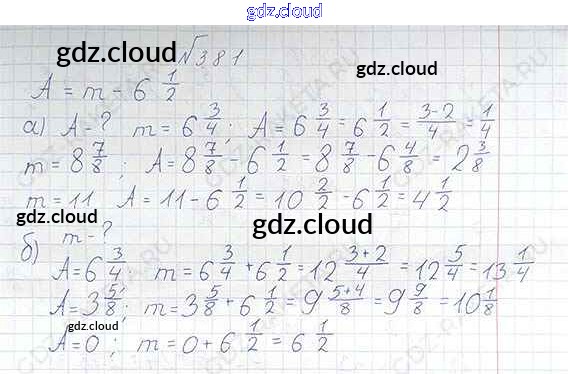 gdz.cloud
gdz.cloud №381
A = m - 6 1/2
а) A - ? m = 6 3/4; A = 6 3/4 = 6 1/2 = 3-2/4 = 1/4
m = 8 7/8; A = 8 7/8 - 6 1/2 = 8 7/8 - 6 4/8 = 2 3/8
m = 11 A = 11 - 6 1/2 = 10 2/2 - 6 1/2 = 4 1/2
gdz.cloud gdz.cloud
б) m - ?
A = 6 3/4 m = 6 3/4 + 6 1/2 = 12 3+2/4 = 12 5/4 = 13 1/4
A = 3 5/8; m = 3 5/8 + 6 1/2 = 9 5+4/8 = 9 9/8 = 10 1/8
gdz.cloud
A = 0; m = 0 + 6 1/2 = 6 1/2